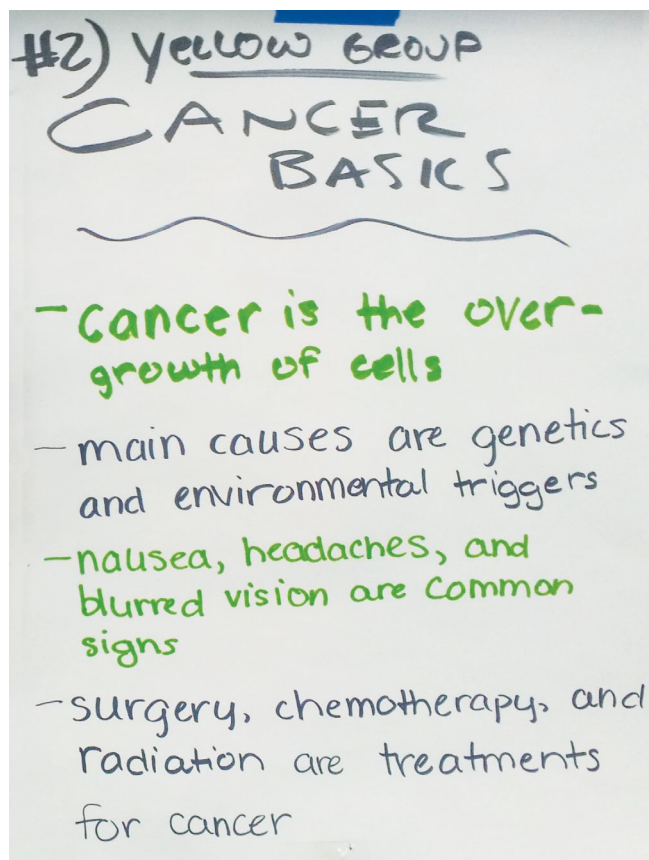 #2) Yellow GROUP
CANCER
BASICS
- cancer is the over-
growth of cells
- main causes are genetics
and environmental triggers
- nausea, headaches, and
blurred vision are common
signs
- surgery, chemotherapy, and
radiation are treatments
for cancer